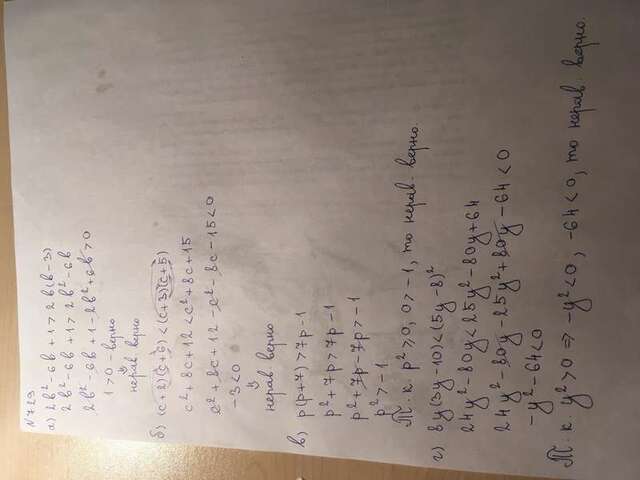 №729
а) 2b² - 6b + 1 > 2b(b - 3)
2b² - 6b + 1 > 2b² - 6b
2b² - 6b + 1 - 2b² + 6b > 0
1 > 0 - верно
⇓
нерав. верно
б) (c+2)(c+6) < (c+3)(c+5)
c² + 8c + 12 < c² + 8c + 15
c² + 8c + 12 - c² - 8c - 15 < 0
-3 < 0
⇓
нерав. верно
в) p(p+7) > 7p - 1
p² + 7p > 7p - 1
p² + 7p - 7p > -1
p² > -1
Т. к. p² ≥ 0, 0 > -1, то нерав. верно.
г) 8y(3y - 10) < (5y - 8)²
24y² - 80y < 25y² - 80y + 64
24y² - 80y - 25y² + 80y - 64 < 0
-y² - 64 < 0
Т. к. y² > 0 ⇒ -y² < 0, -64 < 0, то нерав. верно.